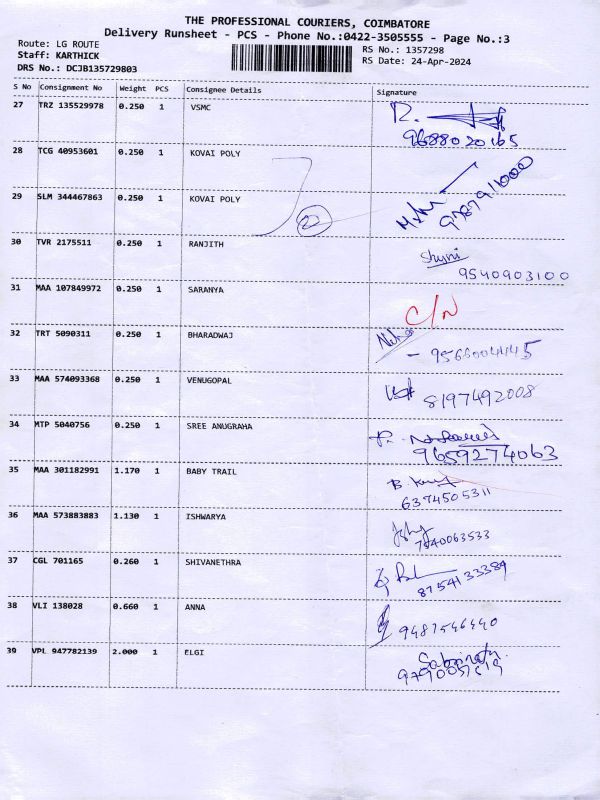 THE PROFESSIONAL COURIERS, COIMBATORE
Delivery Runsheet - PCS - Phone No.:0422-3505555 - Page No.:3
Route: LG ROUTE
RS No.: 1357298
Staff: KARTHICK
RS Date: 24-Apr-2024
DRS No.: DCJB135729803
S No Consignment No Weight PCS Consignee Details Signature
27 TRZ 135529978 0.250 1 VSMC
9688020165
28 TCG 40953601 0.250 1 KOVAI POLY
29 SLM 344467863 0.250 1 KOVAI POLY
22
30 TVR 2175511 0.250 1 RANJITH
9540903100
31 MAA 107849972 0.250 1 SARANYA
C/N
32 TRT 5090311 0.250 1 BHARADWAJ
- 9566004445
33 MAA 574093368 0.250 1 VENUGOPAL
8197492008
34 MTP 5040756 0.250 1 SREE ANUGRAHA
9659274063
35 MAA 301182991 1.170 1 BABY TRAIL
6374505311
36 MAA 573883883 1.130 1 ISHWARYA
7540063533
37 CGL 701165 0.260 1 SHIVANETHRA
8754133389
38 VLI 138028 0.660 1 ANNA
9487546440
39 VPL 947782139 2.000 1 ELGI